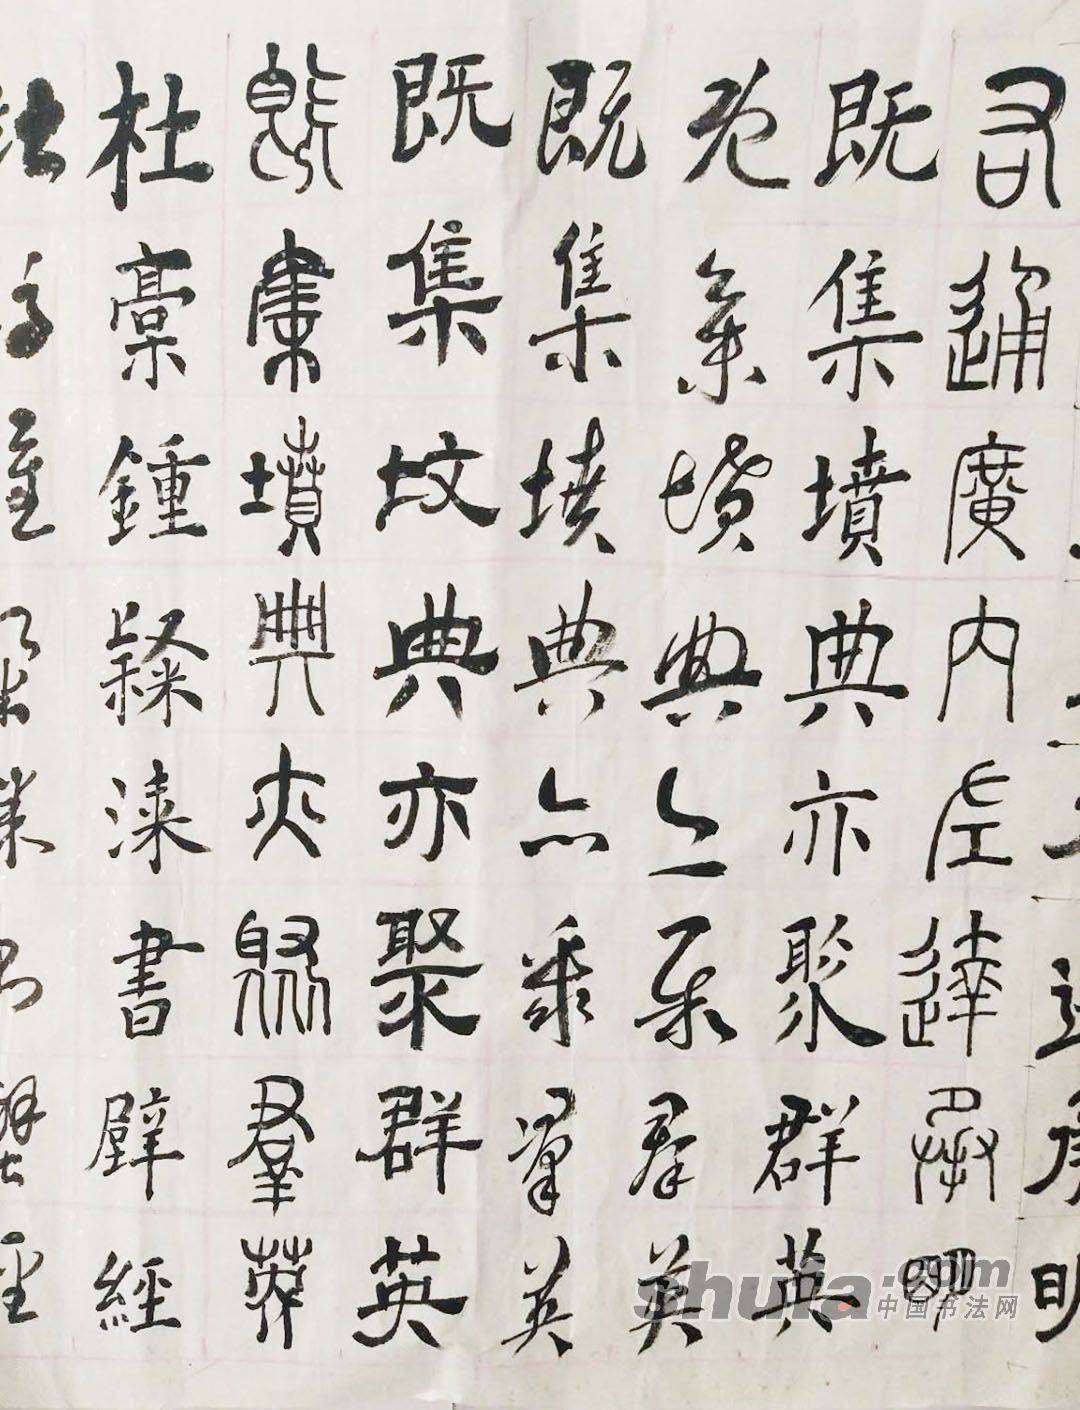 右通廣內左達承明
既集墳典亦聚群英
既集墳典亦聚群英
既集墳典亦聚群英
既集坟典亦聚群英
既集墳典亦聚羣英
杜稾鍾隸漆書壁經
shufa.com
中国书法网